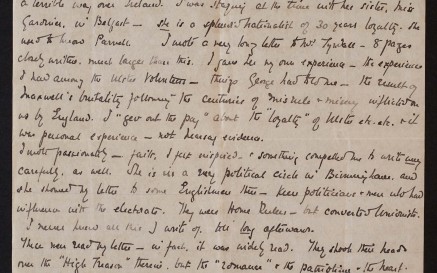 a terrible way over Ireland. I was staying at the time with her sister, Miss
Gardner, in Belfast — she is a splendid nationalist of 30 years loyalty. She
used to know Parnell. I wrote a very long letter to Mrs Tyndale — 8 pages
closely written, much larger than this. I gave her my own experience — the experience
I had among the Ulster Volunteers — things George had told me — the result of
Maxwell's brutality following the centuries of misrule & misery inflicted on
us by England. I "gave out the pay" about the "loyalty" of Ulster etc. etc. & it
was personal experience — not hearsay evidence.
I wrote passionately — faith, I felt inspired & something compelled me to write very
carefully, as well. She is in a very political circle in Birmingham, and
she showed my letter to some Englishmen there — keen politicians & men who had
influence with the electorate. They were Home Rulers — but converted Unionists.
I never knew all this I write of, till long afterwards.
These men read my letter — in fact, it was widely read. They shook their heads
over the "High Treason" therein, but the "romance" & the patriotism & the heart